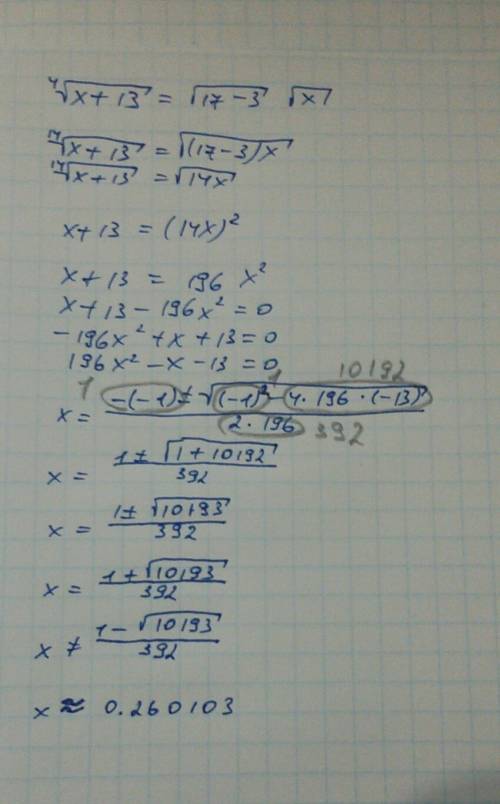 ⁴√(x+13) = √(17-3) √x
¹⁷√(x+13) = √((17-3)x)
¹⁷√(x+13) = √(14x)
x+13 = (14x)²
x+13 = 196 x²
x+13-196x² = 0
-196x²+x+13=0
196x²-x-13=0
1 1 10192
x = (-(-1) ± √((-1)² - 4·196·(-13))) / (2·196) 392
x = (1±√(1+10192)) / 392
x = (1±√10193) / 392
x = (1+√10193) / 392
x ≠ (1-√10193) / 392
x ≈ 0.260103